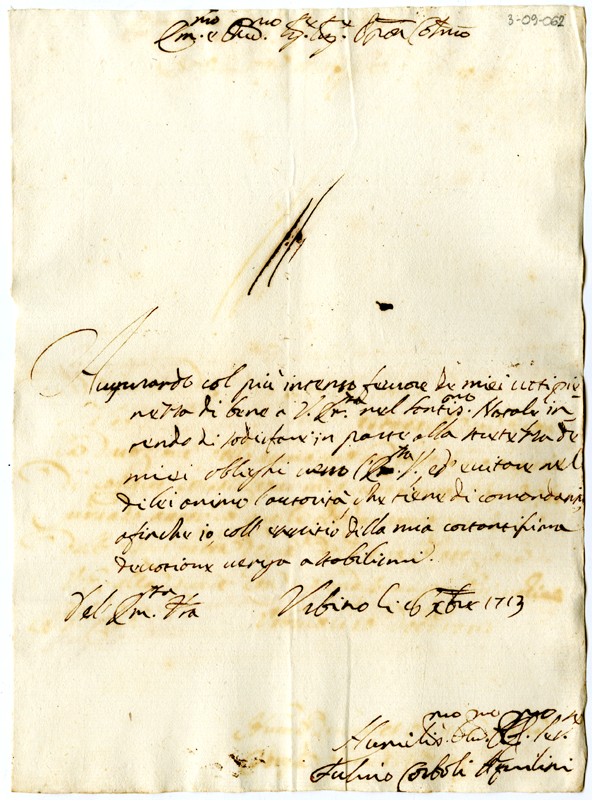 3-09-062
Em.mo e Rev.mo Sig.r Sig.r Pron Col.mo
Augurando col più intenso fervore de miei voti pie
nezza di bene a V. Em.za nel Santis.mo Natale in
tendo di sodisfare in parte alla
miei oblighi verso l'Em.za V., ed' eccitare nel
di lei animo l'autorità, che tiene di comandarmi,
afinche io coll' esercitio della mia costantissima
devotione venga a stabilirmi.
Dell' Em.za V'ra Urbino li Xbre 1713
Humilis.mo Dev.mo Ser.re
Fulvio Corboli Aquilini